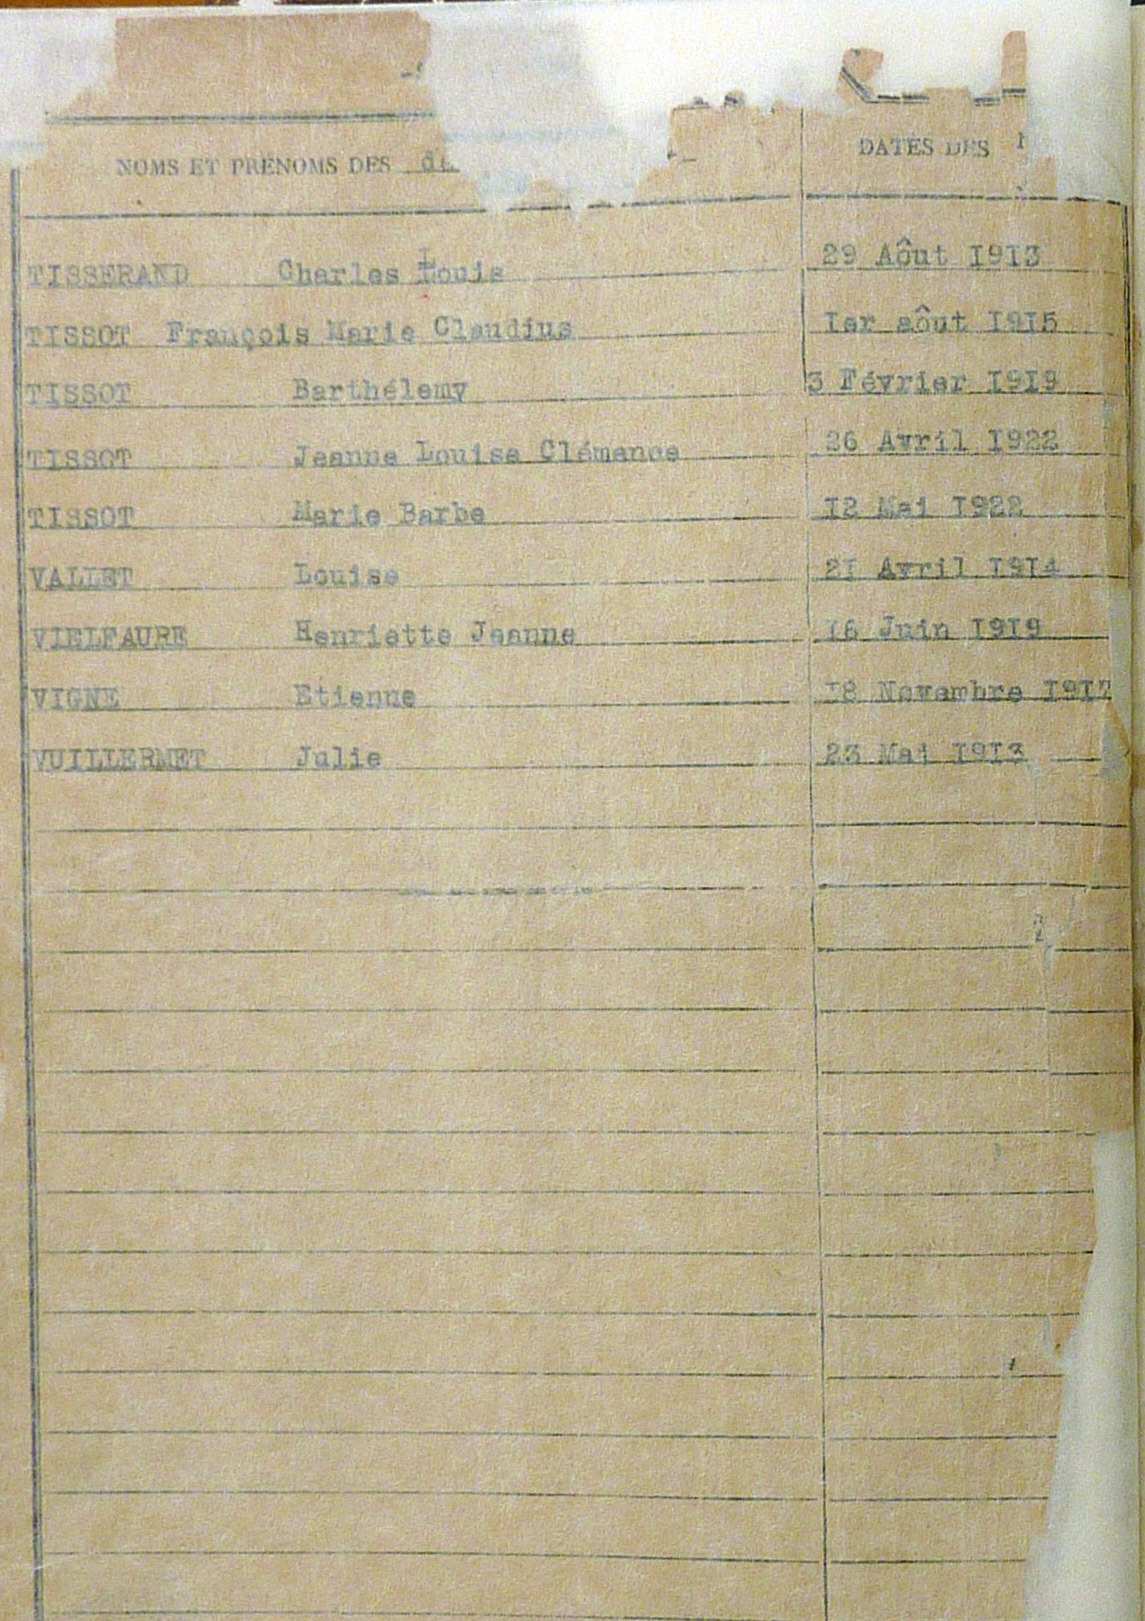 NOMS ET PRÉNOMS DES DATES DES
TISSERAND Charles Louis 29 Aôut 1913
TISSOT François Marie Claudius 1er aôut 1915
TISSOT Barthélemy 3 Février 1919
TISSOT Jeanne Louise Clémence 26 Avril 1922
TISSOT Marie Barbe 12 Mai 1922
VALLET Louise 21 Avril 1914
VIELFAURE Henriette Jeanne 16 Juin 1919
VIGNE Etienne 18 Novembre 1917
VUILLERMET Julie 23 Mai 1913